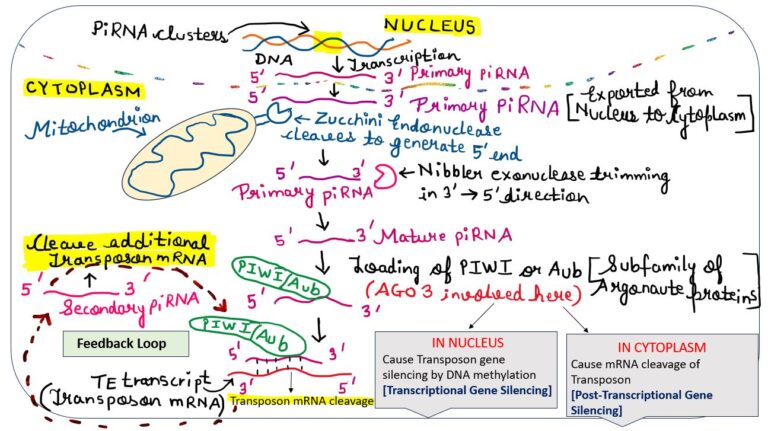 PiRNA clusters
NUCLEUS
DNA
Transcription
5' 3' Primary piRNA
CYTOPLASM
5' 3' Primary PiRNA
[Exported from
Nucleus to Cytoplasm]
Mitochondrion
Zucchini Endonuclease
cleaves to generate 5' end
5' 3'
Primary piRNA
Nibbler exonuclease trimming
in 3' → 5' direction
5' 3' Mature piRNA
Cleave additional
Transposon mRNA
PIWI/Aub
5' 3'
Loading of PIWI or Aub
(AGO 3 involved here)
[Subfamily of
Argonaute proteins]
5' 3'
Secondary piRNA
Feedback Loop
PIWI/Aub
5' 3'
3' 5'
TE transcript
(Transposon mRNA)
Transposon mRNA cleavage
IN NUCLEUS
Cause Transposon gene
silencing by DNA methylation
[Transcriptional Gene Silencing]
IN CYTOPLASM
Cause mRNA cleavage of
Transposon
[Post-Transcriptional Gene
Silencing]